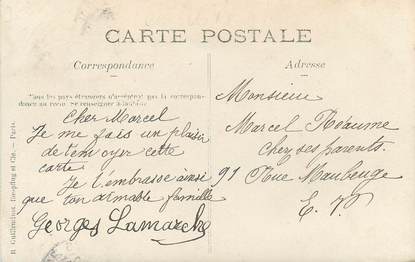 CARTE POSTALE
Correspondance
Tous les pays étrangers n'acceptent pas la correspon-
dance au recto. Se renseigner à la Poste
Cher Marcel
Je me fais un plaisir
de t'envoyer cette
carte
Je t'embrasse ainsi
que ton aimable famille
Georges Lamarche
Adresse
Monsieur
Marcel Réaume
chez ses parents.
91 Rue Maubeuge
E. V.
Paris.